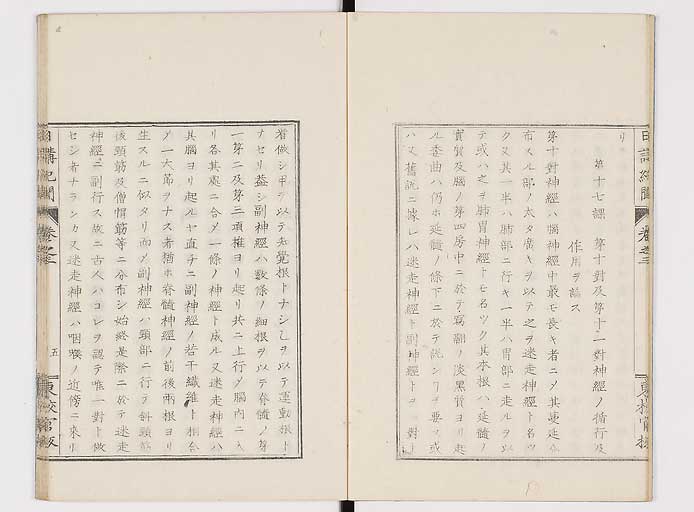 日講紀聞 卷之三 東校官板
リ
第十七課 第十對及第十一對神經ノ循行及
作用ヲ論ス
第十對神經ハ腦神經中最モ長キ者ニメ其蔓延分
布スル部ノ太タ廣キヲ以テ之ヲ迷走神經ト名ツ
ク又其一半ハ肺部ニ行キ一半ハ胃部ニ走ルヲ以
テ或ハ之ヲ肺胃神經トモ名ツク其本根ハ延髓ノ
實質及腦ノ第四房中ニ於テ寫翻ノ淡黑質ヨリ起
ル委曲ハ仍ホ延髓ノ條下ニ於テ説ンヿヲ要ス或
ハ又舊説ニ據レハ迷走神經ト副神經トヲ一對ト
看做シ甲ヲ以テ知覺根トナシ乙ヲ以テ運動根ト
ナセリ蓋シ副神經ハ數條ノ細根ヲ以テ脊髓ノ第
一第二及第三項椎ヨリ起リ共ニ上行メ腦内ニ入
リ各其處ニ合メ一條ノ神經ト成ル又迷走神經ハ
其腦ヨリ起ルヤ直チニ副神經ノ若干纖維ト相合
メ一大節ヲナス者猶ホ脊髓神經ノ前後兩根ヨリ
生スルニ似タリ而メ副神經ハ頸部ニ行テ斜頸筋
後頸筋及僧帽筋等ニ分布シ始終是際ニ於テ迷走
神經ニ副行ス故ニ古人ハコレヲ認テ唯一對ト做
セシ者ナランカ又迷走神經ハ咽喉ノ近傍ニ來リ
日講紀聞 卷之三 五 東校官板